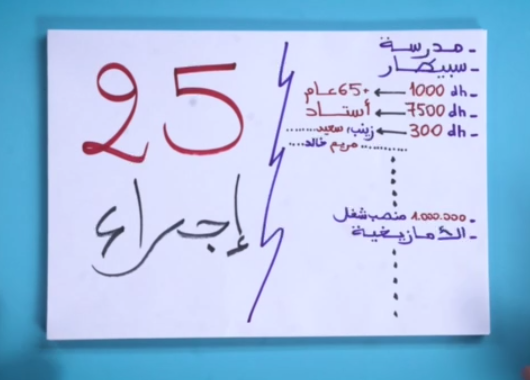 25
إجراء
- مدرسة
- سبيطار
- 1000 dh ← +65 عام
- 7500 dh ← أستاد
- 300 dh ← زينب، سعيد......
...... مريم خالد...
- 1.000.000 منصب شغل
- الأمازيغية